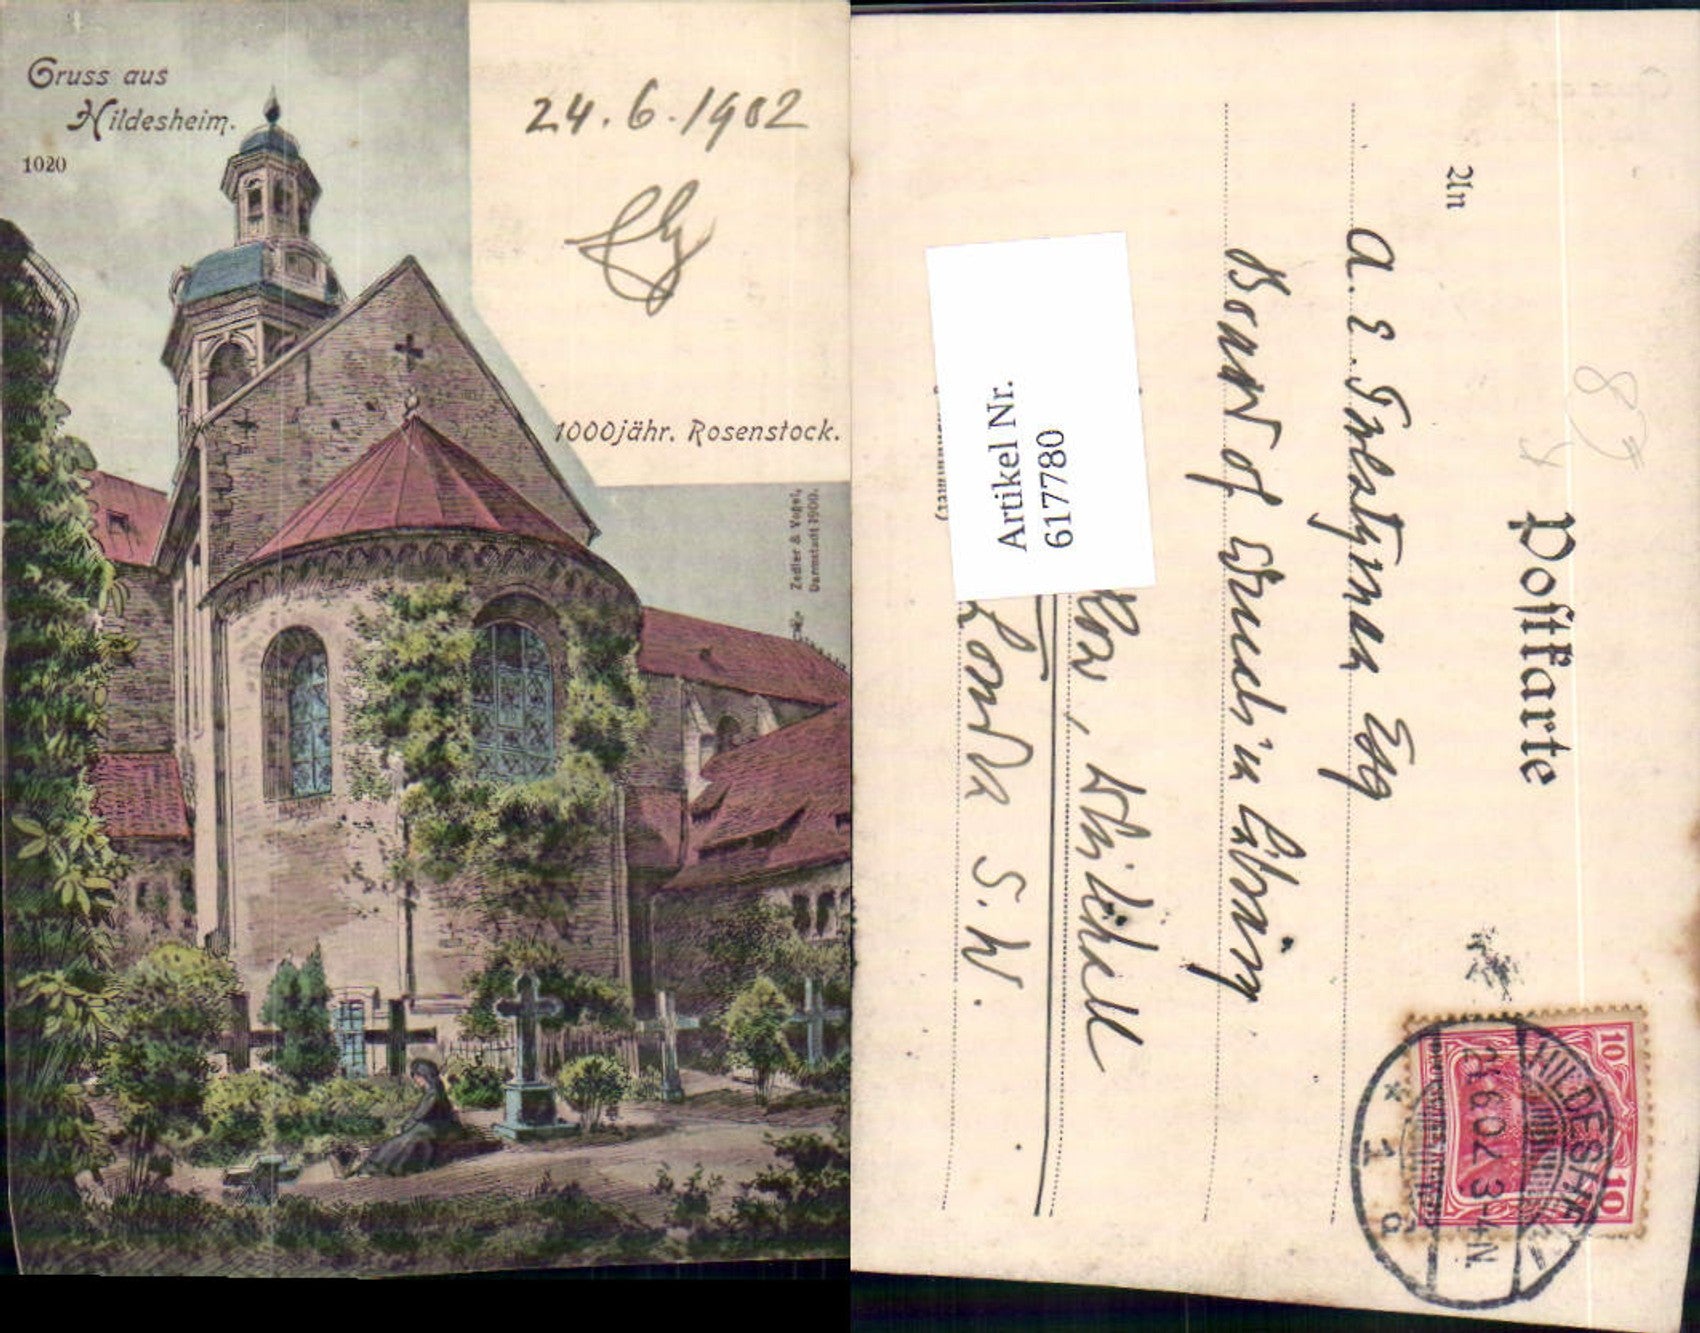 Gruss aus
Hildesheim.
1020
24.6.1902
1000jähr. Rosenstock.
Zedler & Vogel,
Darmstadt 1900.
Postkarte
An
A. E. Esq
Board of
Whitehall
London S.W.
Artikel Nr.
617780
HILDESHEIM
24.6.02.3-4N.
* 1 a
10 10